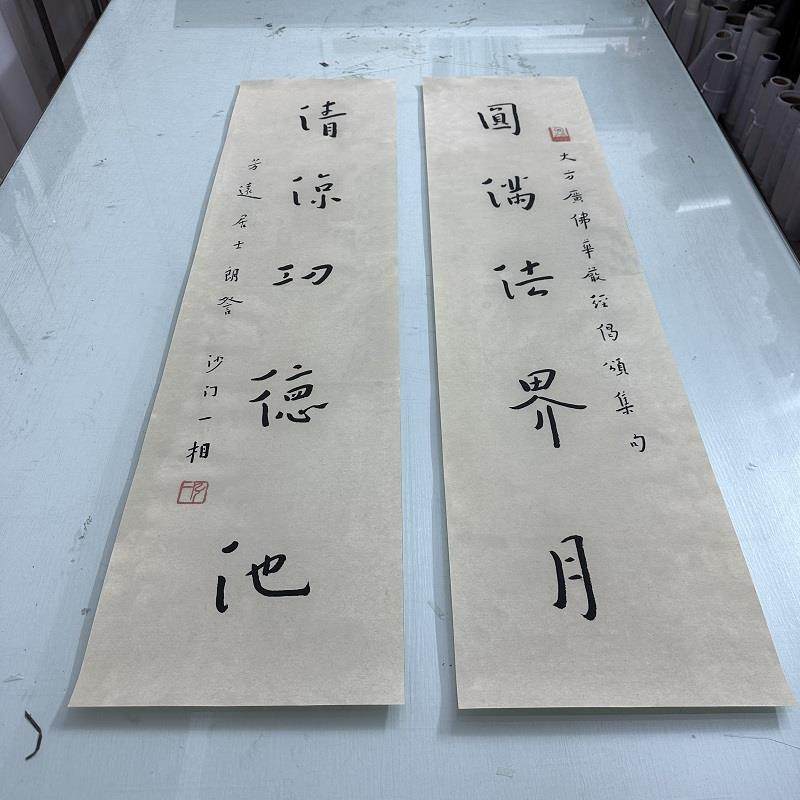 圓滿法界月
大方廣佛華嚴經偈頌集句
清涼功德池
芳遠居士朗詧
沙门一相